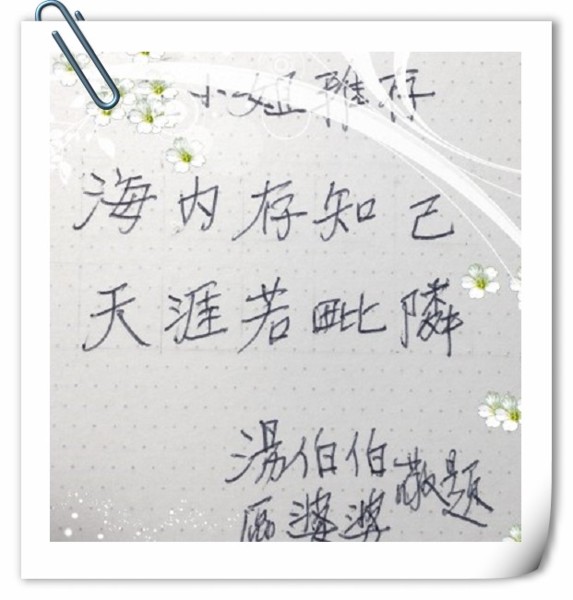 小妞雅存
海内存知己
天涯若毗隣
湯伯伯敬題
區婆婆